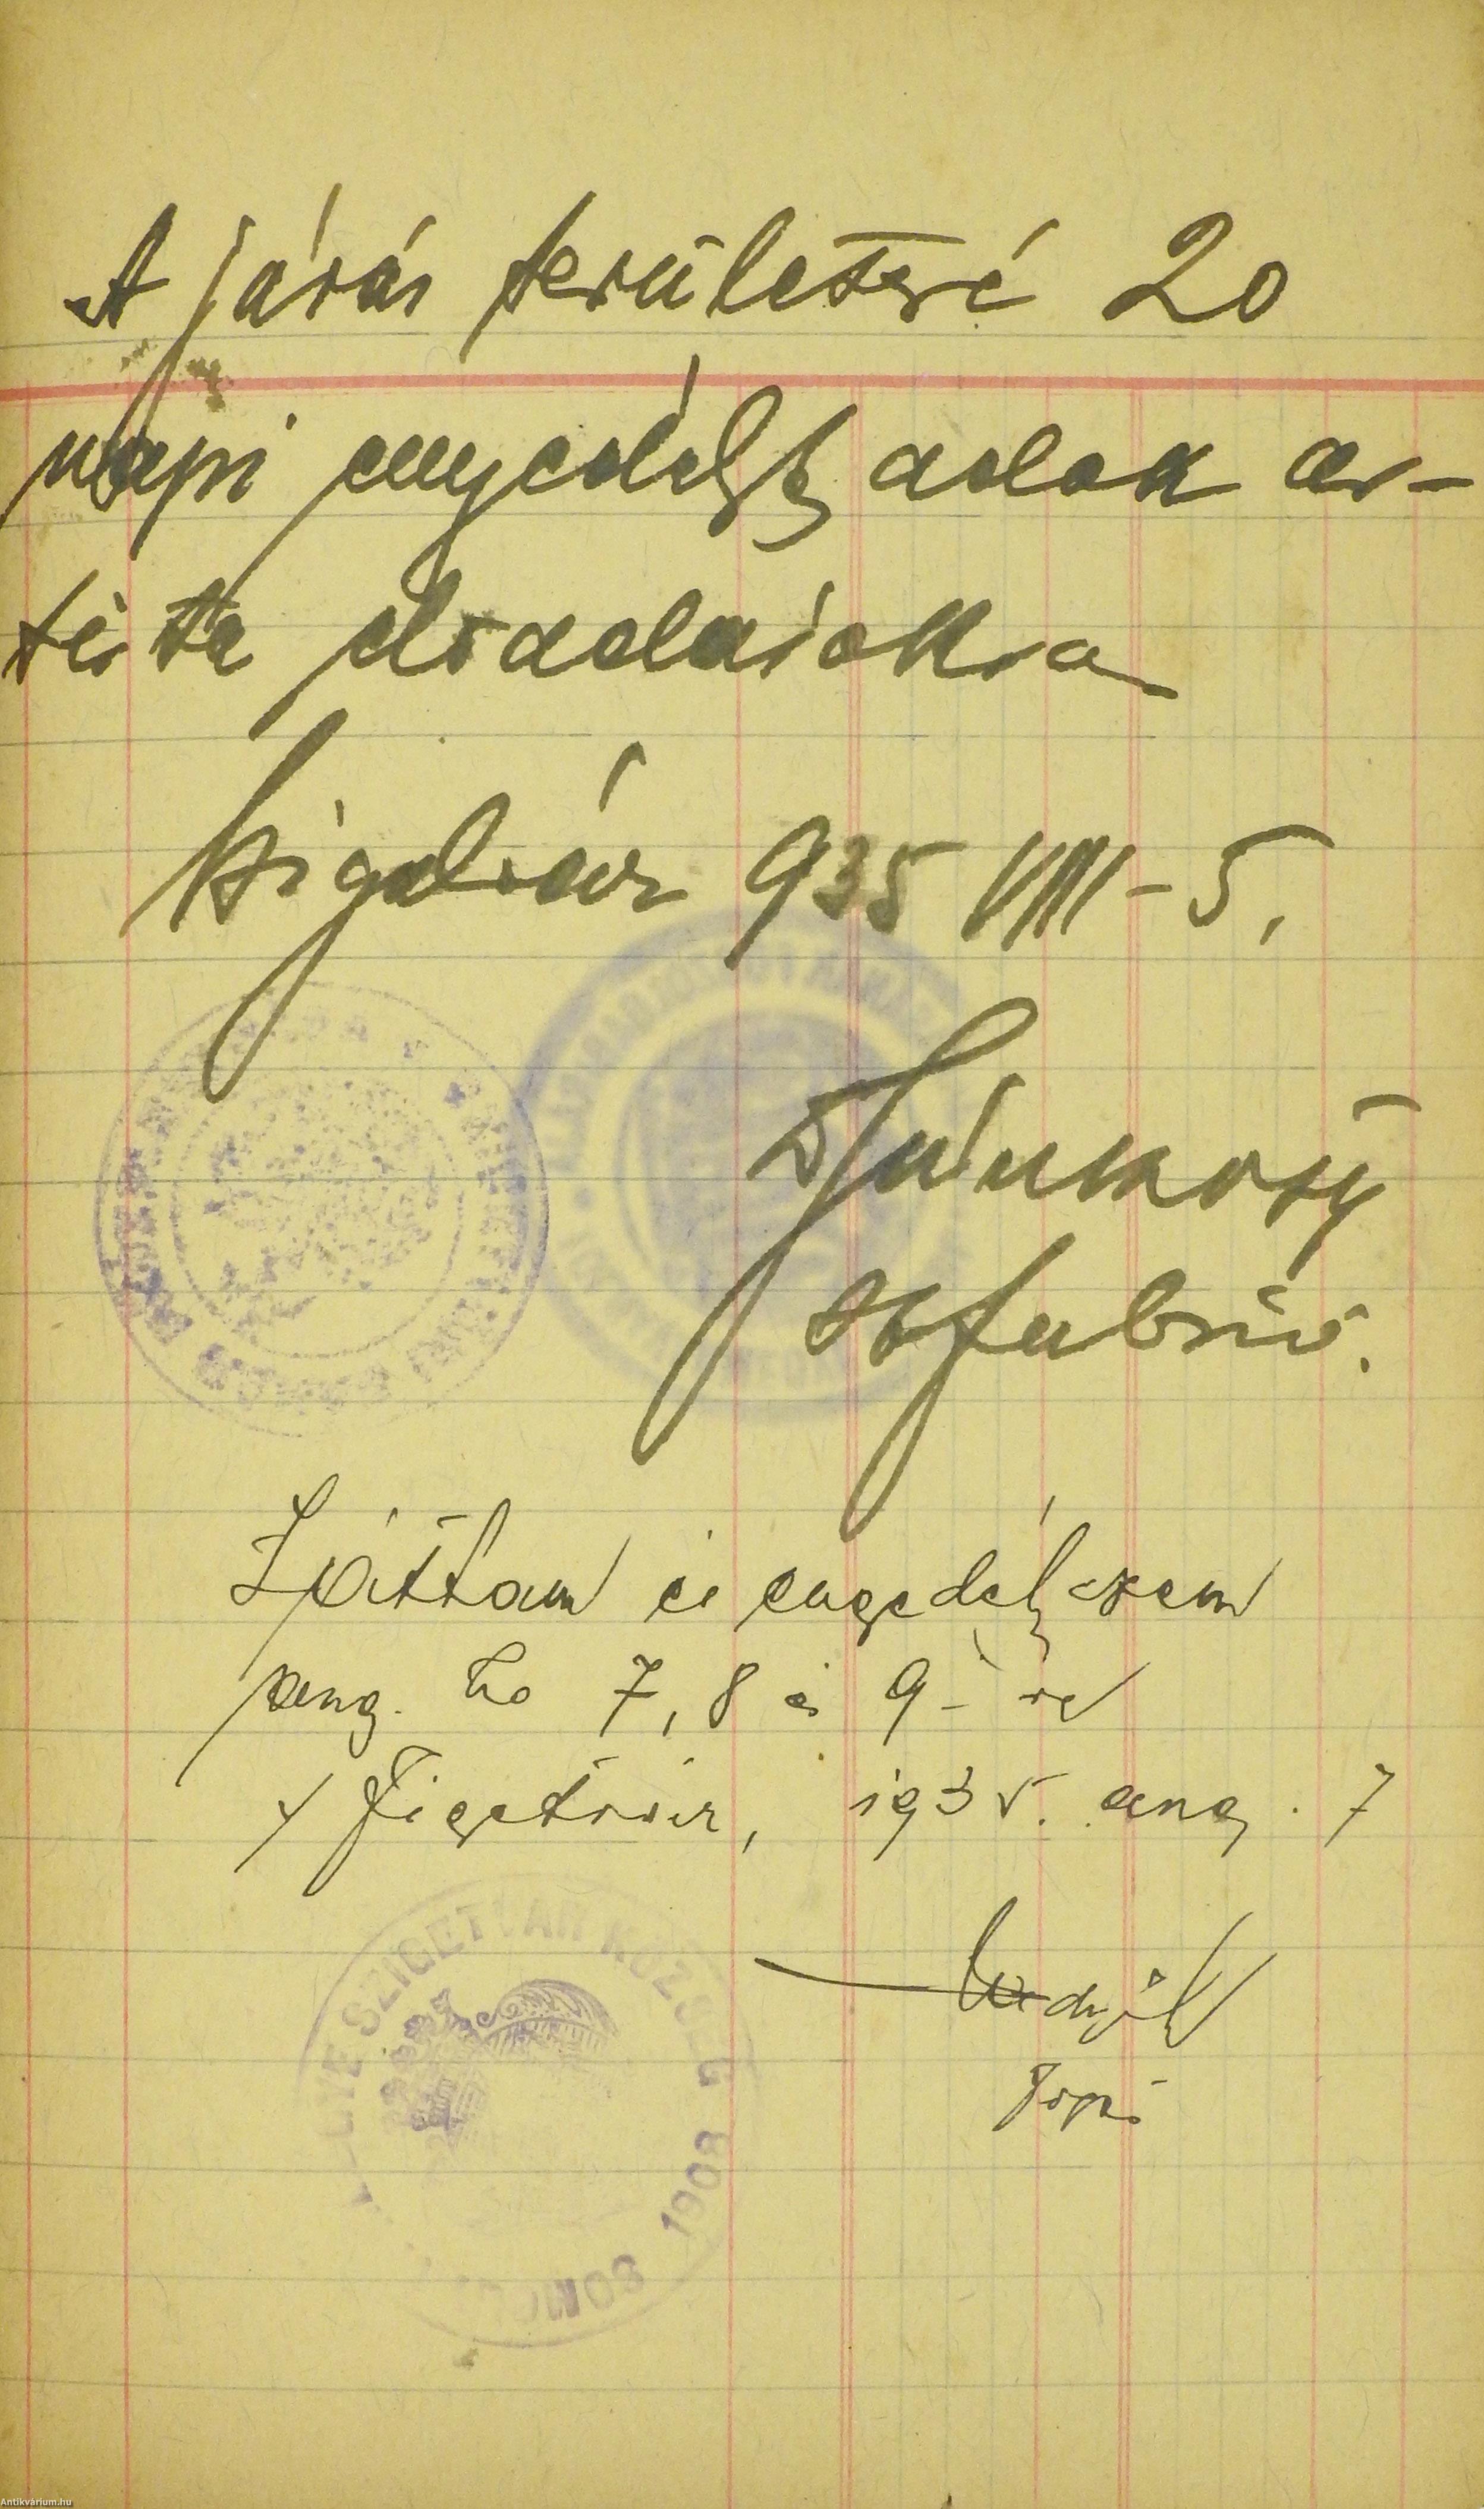 A járás területére 20
napi engedélyt adok ar-
tista előadásokra
Szigetvár 935 VIII - 5.
szfőbíró.
Láttam és engedélyezem
aug. hó 7, 8 és 9-re
Szigetvár, 1935. aug. 7
SZIGETVÁR KÖZSÉG
1908
Antikvárium.hu